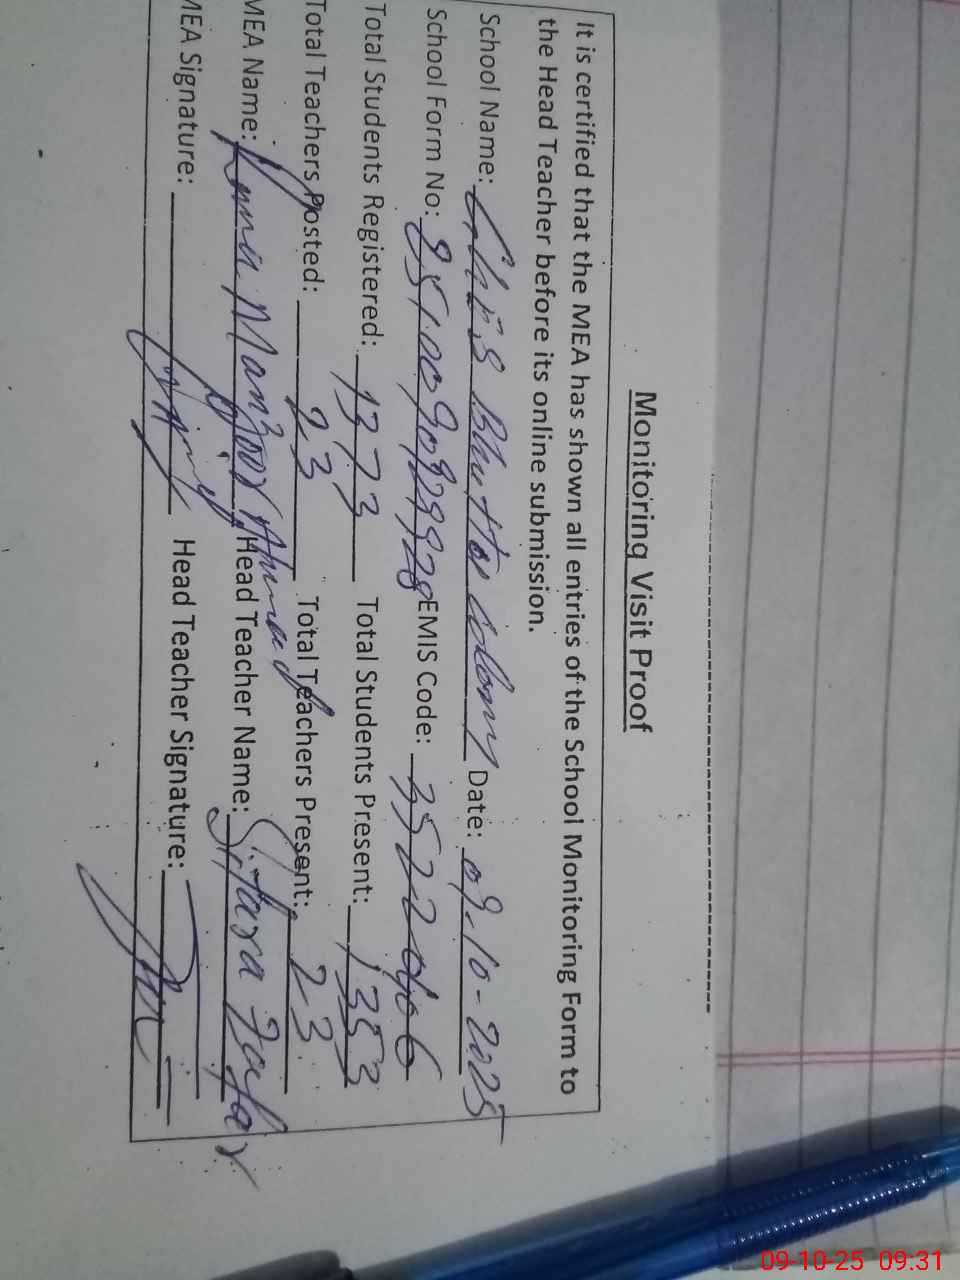 Monitoring Visit Proof
It is certified that the MEA has shown all entries of the School Monitoring Form to
the Head Teacher before its online submission.
School Name: GGHSS Bhutto Colony Date: 09-10-2025
School Form No: EMIS Code: 35220406
Total Students Registered: 1373 Total Students Present: 1353
Total Teachers Posted: 23 Total Teachers Present: 23
MEA Name: Manzoor Ahmad Head Teacher Name: Sitara Zafar
MEA Signature: Head Teacher Signature:
09-10-25 09:31